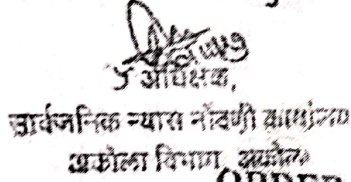 अधिक्षक,
सार्वजनिक न्यास नोंदणी कार्यालय
अकोला विभाग, अकोला
ORDER